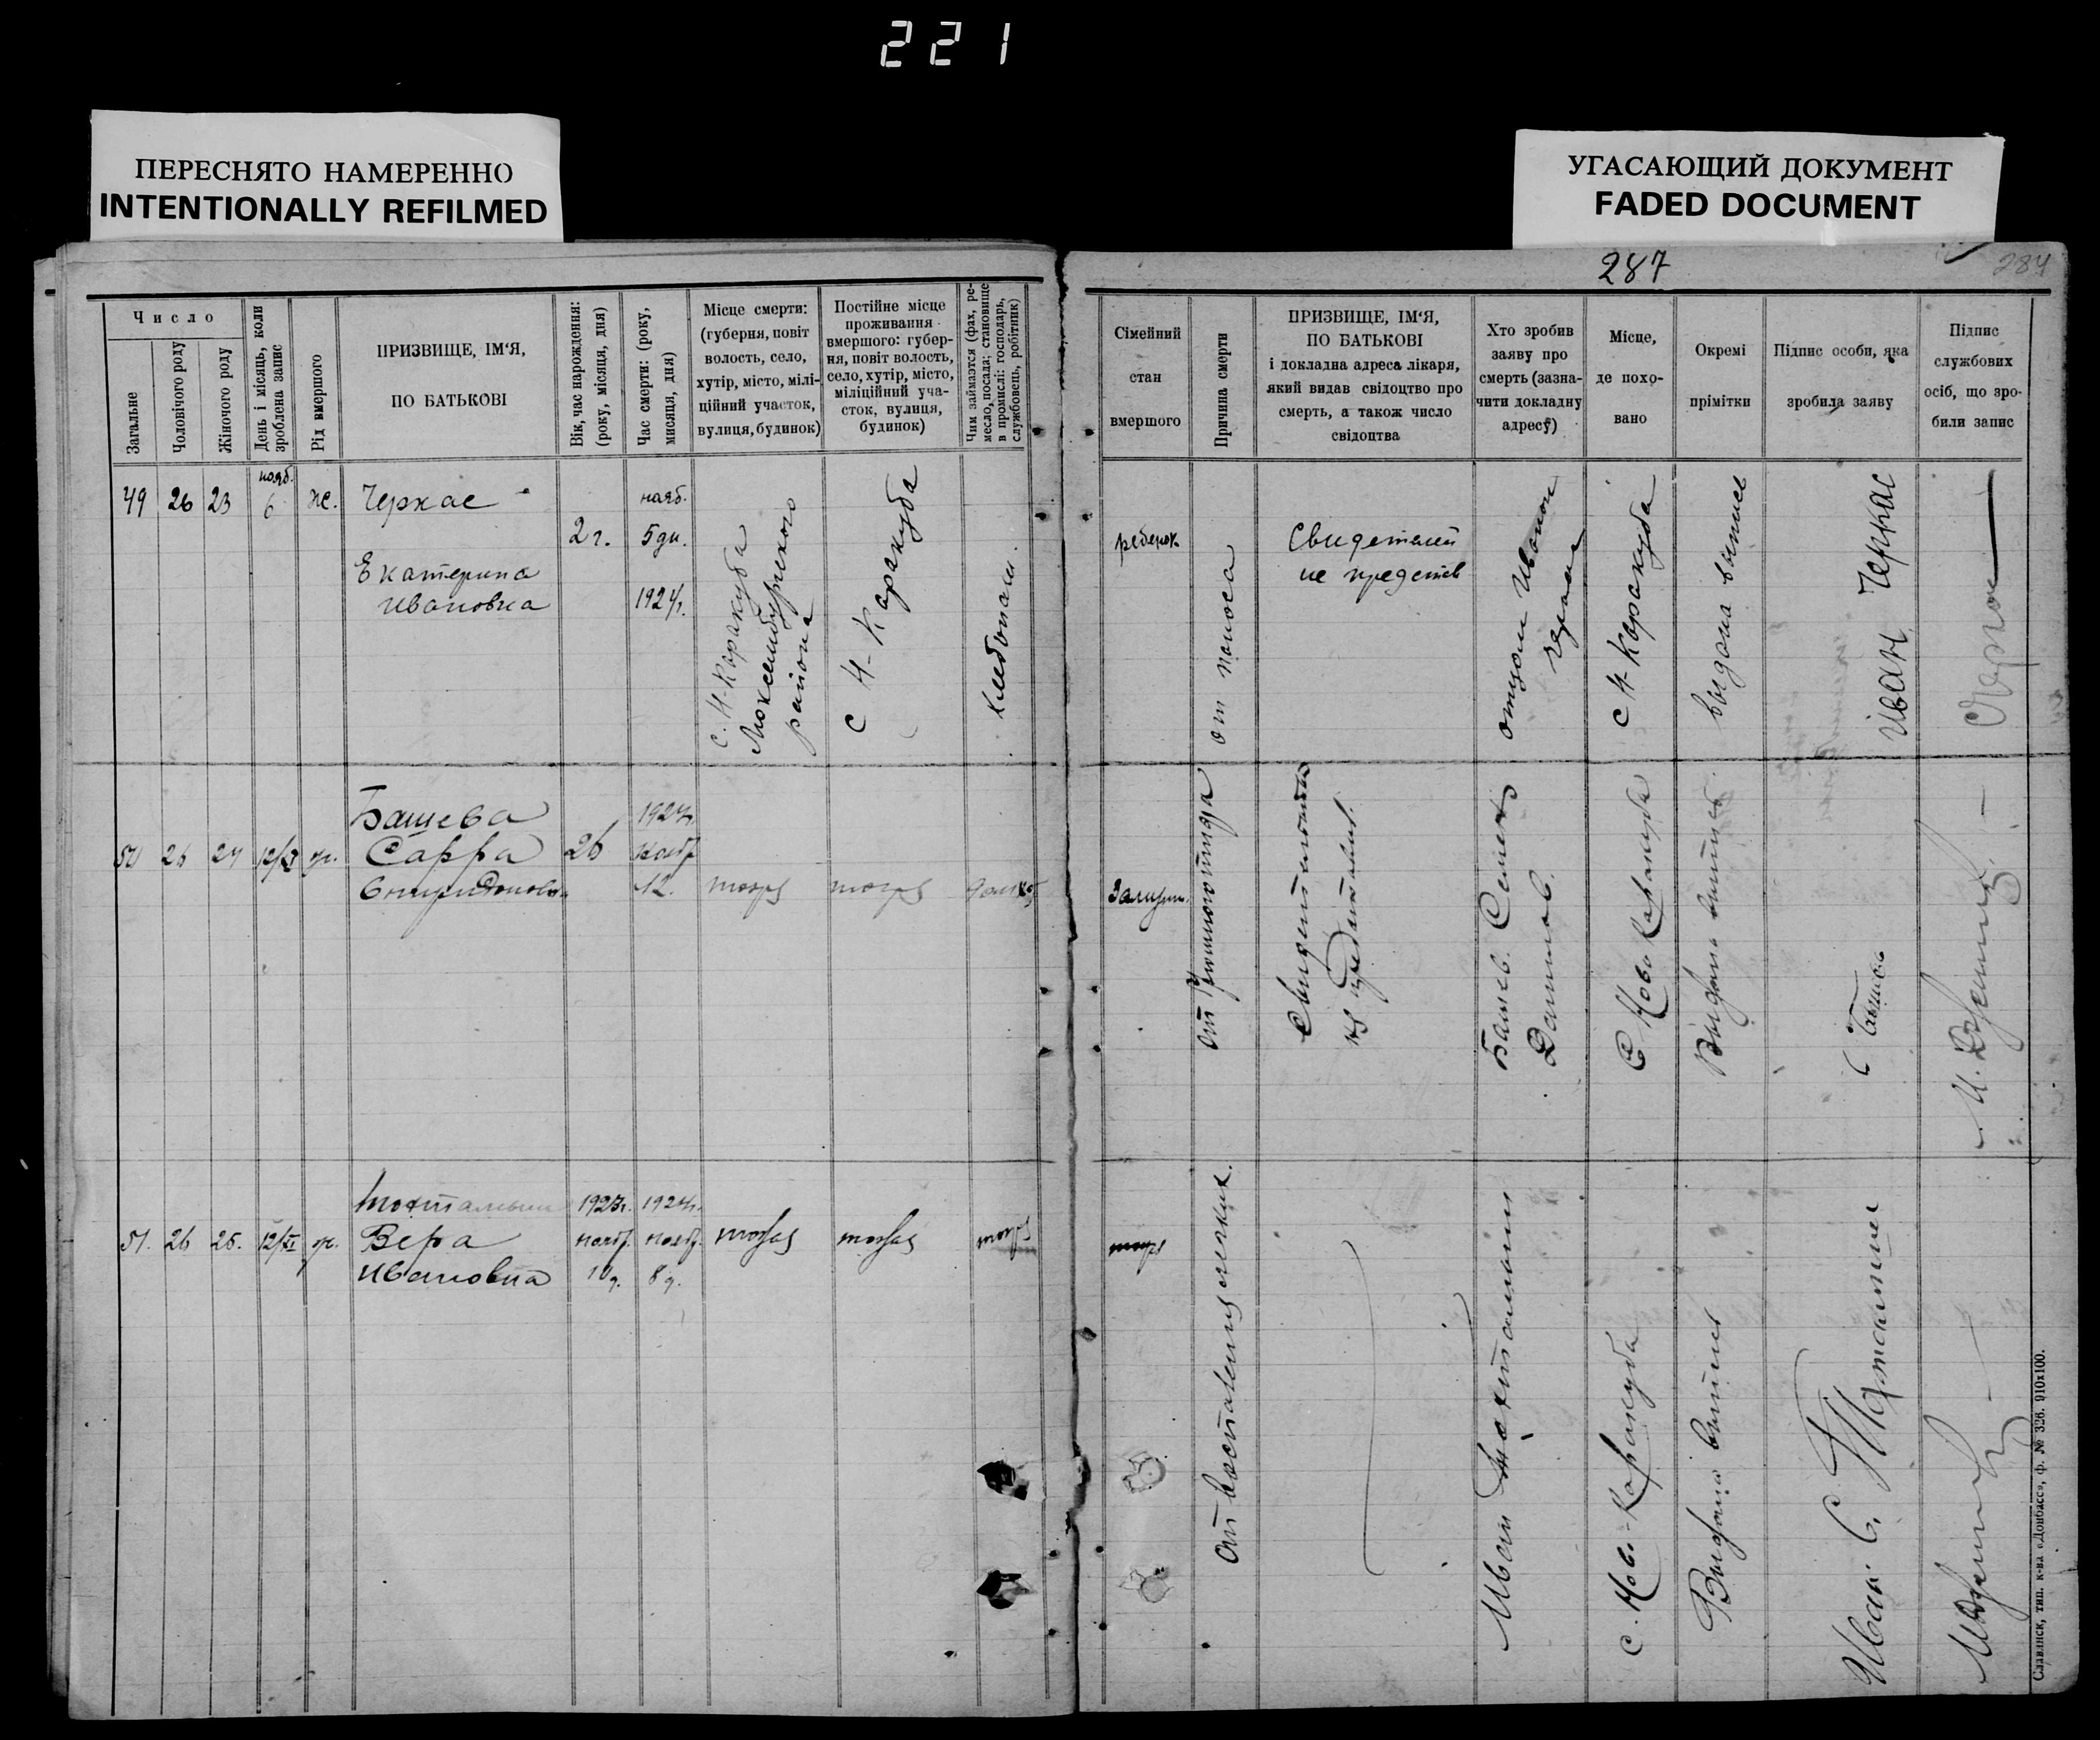 221
ПЕРЕСНЯТО НАМЕРЕННО
INTENTIONALLY REFILMED
УГАСАЮЩИЙ ДОКУМЕНТ
FADED DOCUMENT
287
284
Число
Загальне
Чоловічого роду
Жіночого роду
День і місяць, коли
зроблена запис
Рід вмершого
ПРИЗВИЩЕ, ІМ'Я,
ПО БАТЬКОВІ
Вік, час нарождення:
(року, місяця, дня)
Час смерти: (року,
мисяця, дня)
Місце смерти:
(губерня, повіт
волость, село,
хутір, місто, мілі-
ційний участок,
вулиця, будинок)
Постійне місце
проживання
вмершого: губер-
ня, повіт волость,
село, хутір, місто,
міліційний уча-
сток, вулиця,
будинок)
Чим займаэтся (фах, ре-
месло, посада; становище
в промислі: господарь,
службовець, робітник)
Сімейний
стан
вмершого
Причина смерти
ПРИЗВИЩЕ, ІМ'Я,
ПО БАТЬКОВІ
і докладна адреса лікаря,
який видав свідоцтво про
смерть, а також число
свідоцтва
Хто зробив
заяву про
смерть (зазна-
чити докладну
адресу)
Місце,
де похо-
вано
Окремі
прімітки
Підпис особи, яка
зробила заяву
Підпис
службових
осіб, що зро-
били запис
49
26
23
нояб.
6
ж.
Черкас
Екатерина
Ивановна
2 г.
нояб.
5 дн.
1924 г.
с. Н-Каракуба
Люксембургского
района
С Н-Каракуба
хлебопаш.
ребенок
от поноса
Свидетелей
не представ
отцом Иваном
Черкас
С Н Каракуба
выдана выпись
Иван Черкас
50
26
24
12/XI
ж.
Башева
Сарра
Спиридонов.
26
1924 г.
нояб.
12.
тоже
тоже
домхоз
Замужн.
Свидетельства
не представил.
Башев. Семен
Данилов.
С Ново Каракуба
Выдана выпись
С Башев
51.
26
25.
12/XI
ж.
Вера
Ивановна
1923 г.
нояб.
10 д.
1924 г.
нояб.
8 д.
тоже
тоже
тоже
тоже
От воспаления легких.
Иван
С. Нов.-Каракуба
Выдана выпись
Иван С.
Славянск, тип. к-на «Донбасс», ф. № 326. 910х100.